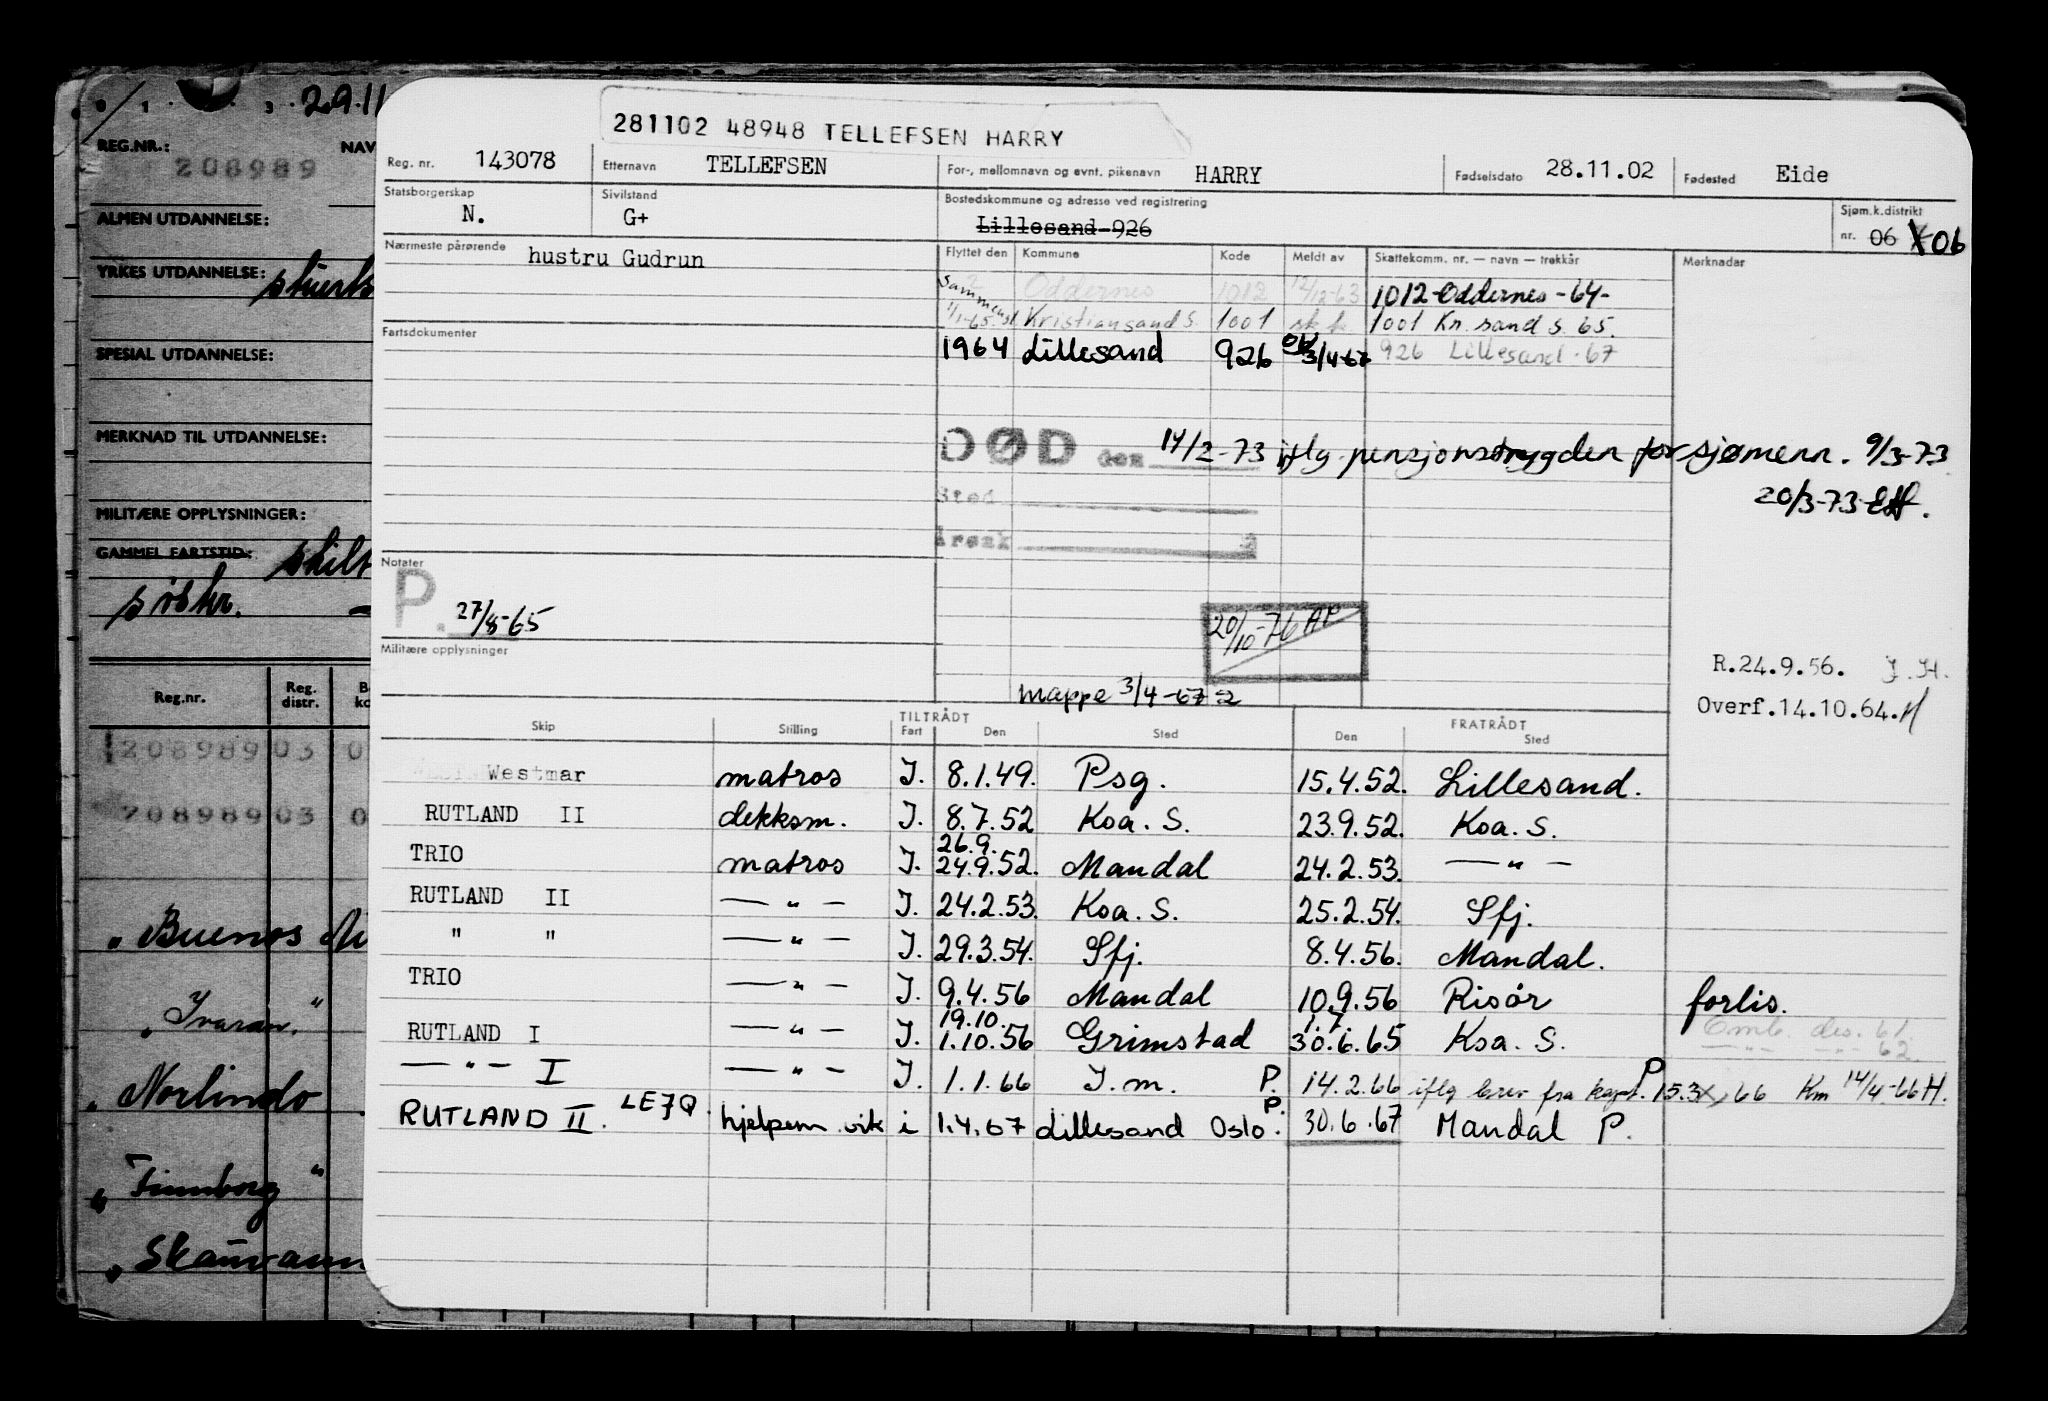 29.11
REG.NR.: 208989 NAV
ALMEN UTDANNELSE:
YRKES UTDANNELSE:
SPESIAL UTDANNELSE:
MERKNAD TIL UTDANNELSE:
MILITÆRE OPPLYSNINGER:
GAMMEL FARTSTID:
Reg.nr. Reg. distr.
208989 03 0
208989 03 0
" Buenos Ai
" Ivaran. "
" Norlindo
" Finnborg "
" Skauvann
281102 48948 TELLEFSEN HARRY
Reg. nr. 143078 Etternavn TELLEFSEN For-, mellomnavn og evnt. pikenavn HARRY Fødselsdato 28.11.02 Fødested Eide
Statsborgerskap N. Sivilstand G+ Bostedskommune og adresse ved registrering Lillesand-926 Sjøm.k.distrikt nr. 06 06
Nærmeste pårørende hustru Gudrun
Flyttet den Kommune Kode Meldt av Skattekomm. nr. — navn — trekkår Merknader
Oddernes 1012 12/12-63 1012-Oddernes-64-
Sammensl. 1/1-65. Kristiansand S. 1001 1001 Kr. sand S. 65.
1964 Lillesand 926 3/4-67 926 Lillesand-67
Fartsdokumenter
DØD den 14/2-73 iflg. pensjonstrygden for sjømenn. 9/3-73
20/3-73
Sted
Årsak
Notater
P. 27/8-65
20/10-76 AP
Militære opplysninger
R.24.9.56. J.H.
mappe 3/4-67
Overf.14.10.64.H
Skip Stilling TILTRÅDT Fart Den Sted FRATRÅDT Den Sted
Westmar matros J. 8.1.49. Psg. 15.4.52. Lillesand.
RUTLAND II dekksm. J. 8.7.52 Koa. S. 23.9.52. Koa. S.
TRIO matros J. 26.9. 24.9.52. Mandal 24.2.53. — " —
RUTLAND II — " — J. 24.2.53. Koa. S. 25.2.54. Sfj.
" " — " — J. 29.3.54. Sfj. 8.4.56. Mandal.
TRIO — " — J. 9.4.56 Mandal 10.9.56 Risör forlis.
RUTLAND I — " — J. 19.10. 1.10.56 Grimstad 1.7. 30.6.65 Koa. S. Omb. des. 61.
— " — — " — 62.
— " — I — " — J. 1.1.66 J.m. P. 14.2.66 iflg brev fra kapt. P 15.3.66 Km 14/4-66 H.
RUTLAND II. LEZQ. hjelpem. vik i 1.4.67 Lillesand Oslo. P. 30.6.67 Mandal P.